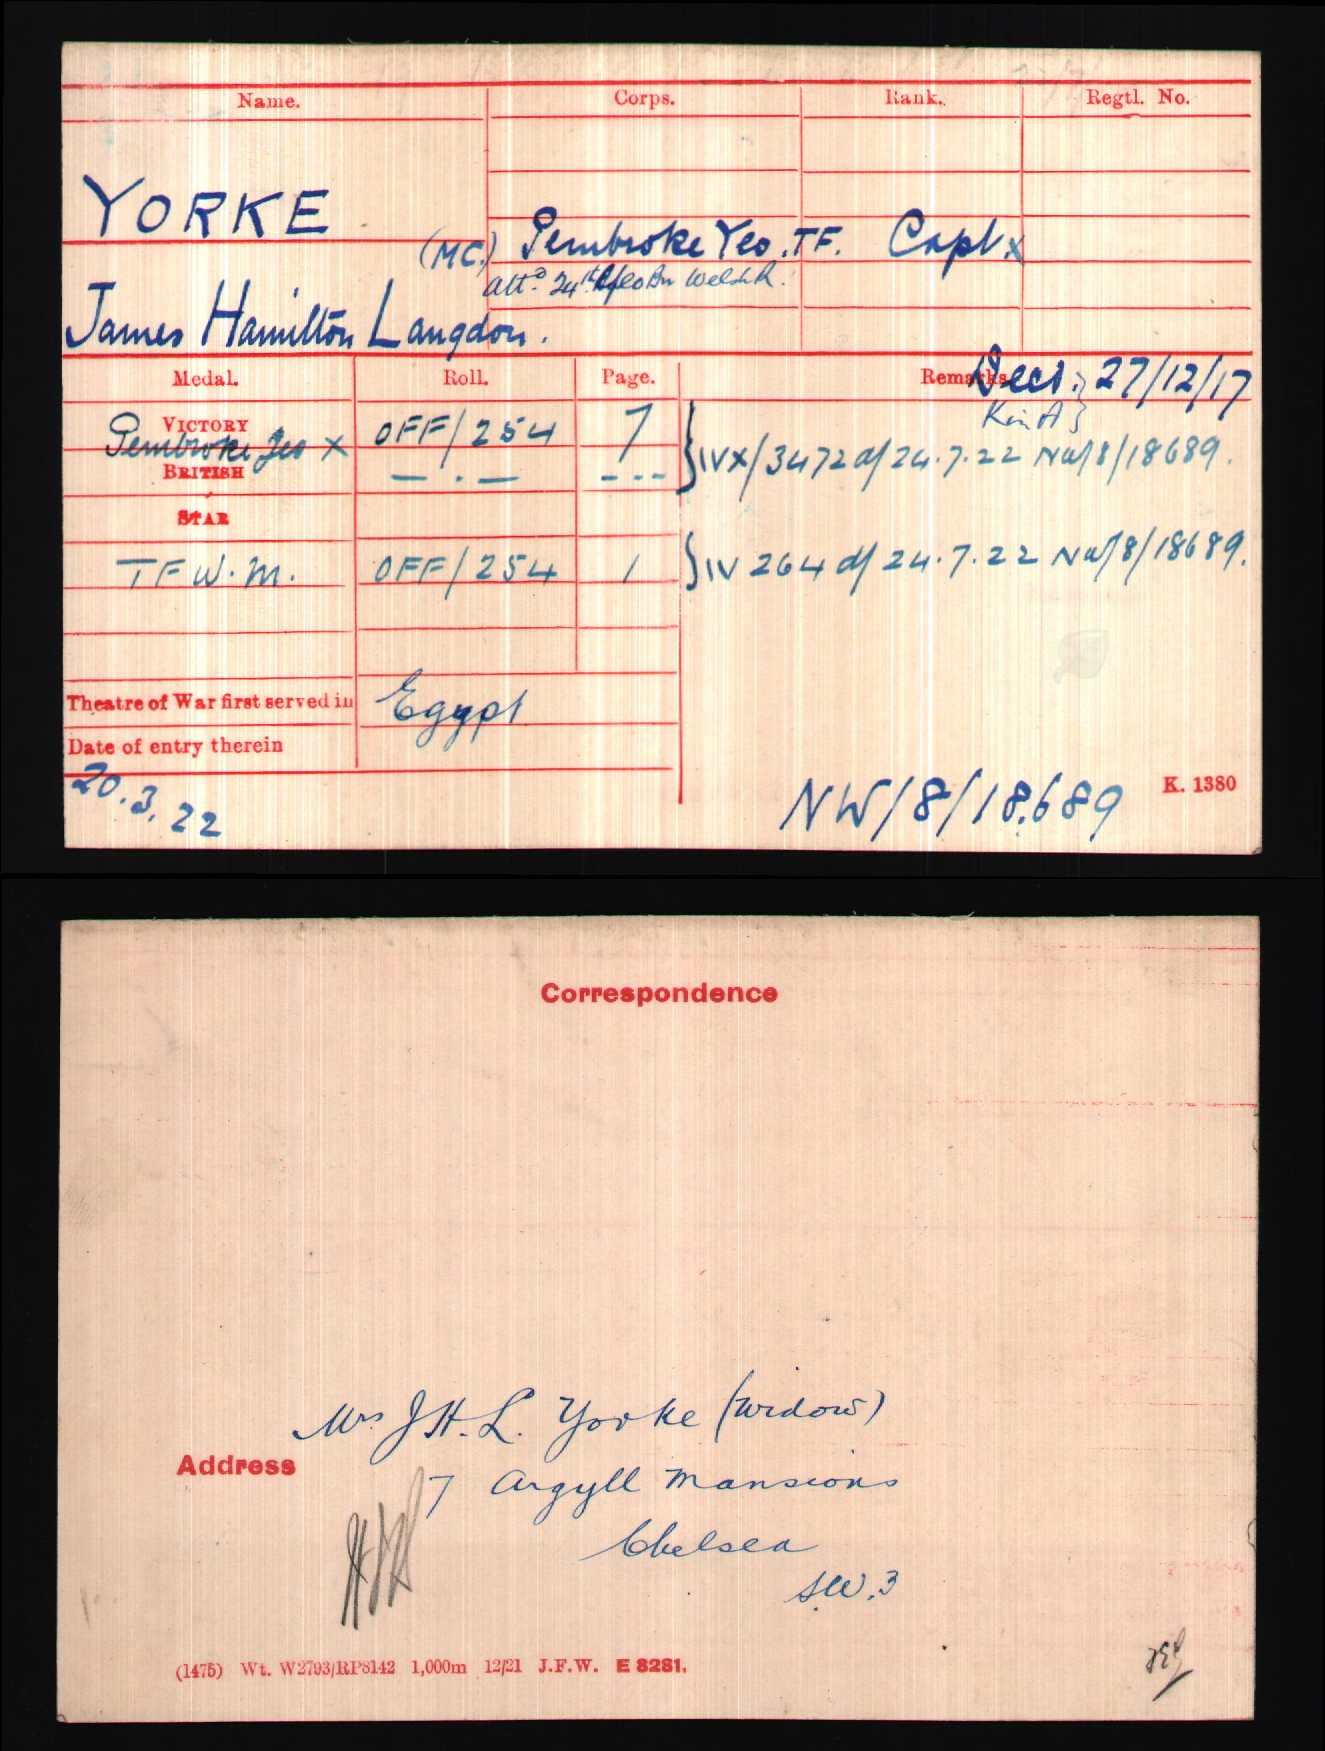 Name. Corps. Rank. Regtl. No.
YORKE
(MC.) Pembroke Yeo. TF. Capt x
Attd 24th Bn Welsh R.
James Hamilton Langdon.
Medal. Roll. Page. Remarks
Decd. 27/12/17
K in A
VICTORY OFF/254 7
Pembroke Yeo X
IVX/3472 d/ 24.7.22 NW/8/18689.
BRITISH — . — - - -
STAR
T F W. M. OFF/254 1 IV 264 d/ 24.7.22 NW/8/18689.
Theatre of War first served in Egypt
Date of entry therein
20.3.22
NW/8/18689
K. 1380
Correspondence
Mrs J H. L. Yorke (widow)
Address
7 Argyll Mansions
Chelsea
S.W.3
(1475) Wt. W2793/RP8142 1,000m 12/21 J.F.W. E 8281.